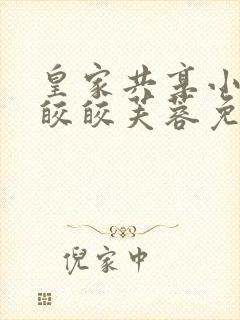 皇家共享小
皎皎芙蓉免
倪家中